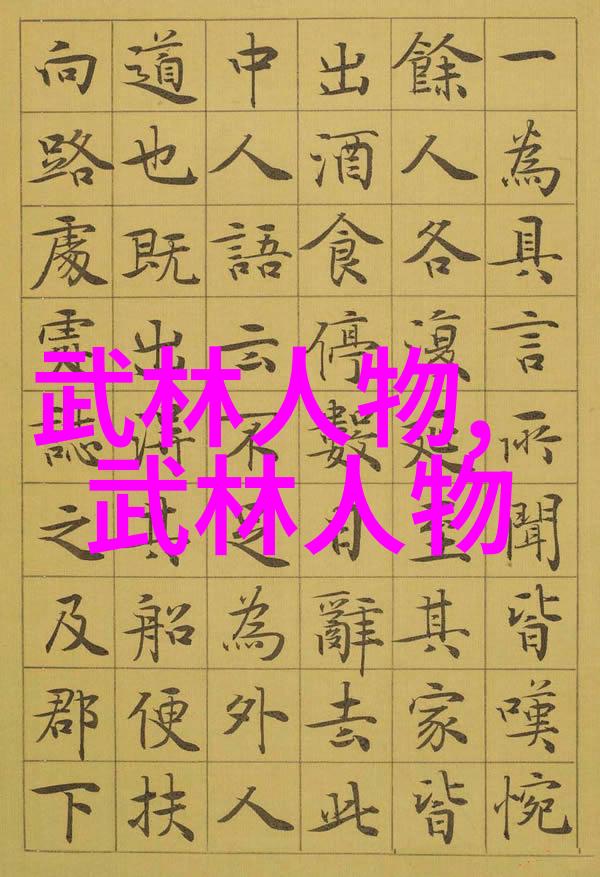 一為具言所聞皆嘆惋
餘人各復延至其家皆
出酒食停數日辭去此
中人語云不足為外人
道也既出得其船便扶
向路處處誌之及郡下
武林人物,
武林人物